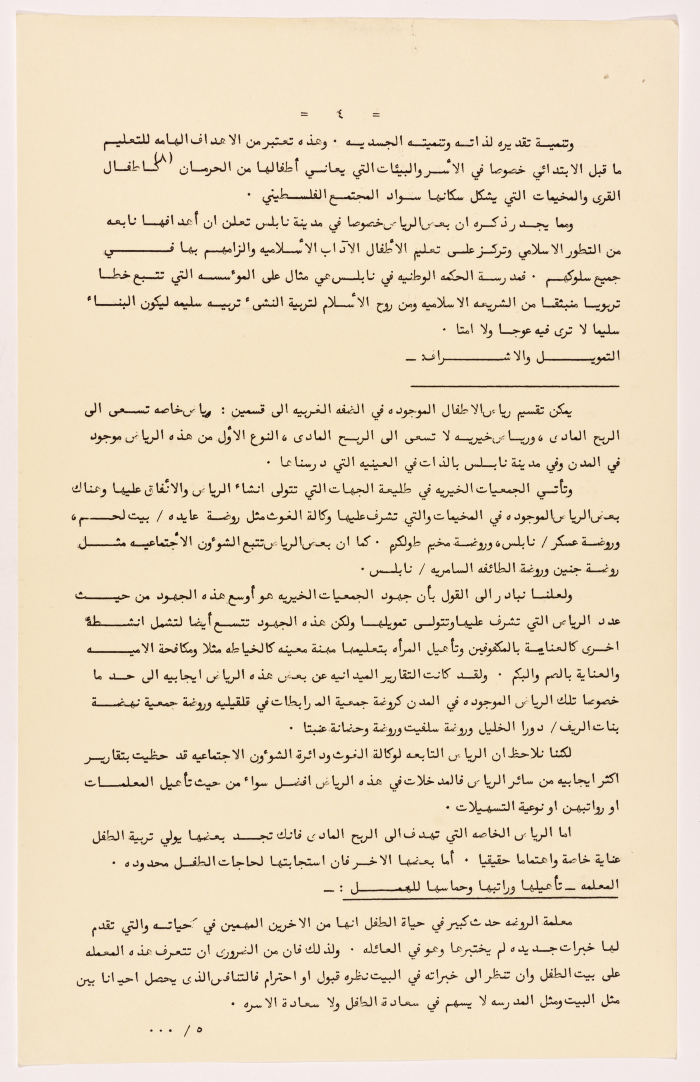 = ٤ =
وتنمية تقديره لذاته وتنميته الجسديه ٠ وهذه تعتبر من الاهداف الهامه للتعليم
ما قبل الابتدائي خصوصا في الأسر والبيئات التي يعاني أطفالها من الحرمان (٨) كاطفال
القرى والمخيمات التي يشكل سكانها سواد المجتمع الفلسطيني ٠
ومما يجدر ذكره ان بعض الرياض خصوصا في مدينة نابلس تعلن ان أهدافها نابعه
من التطور الاسلامي وتركز على تعليم الأطفال الآداب الأسلاميه والزامهم بها في
جميع سلوكهم ٠ فمدرسة الحكمه الوطنيه في نابلس هي مثال على المؤسسه التي تتبع خطا
تربويا منبثقا من الشريعه الاسلاميه ومن روح الأسلام لتربية النشىء تربيه سليمه ليكون البناء
سليما لا ترى فيه عوجا ولا امتا ٠
التمويل والاشراف : ـ
يمكن تقسيم رياض الاطفال الموجوده في الضفه الغربيه الى قسمين : رياض خاصه تسعى الى
الربح المادى ، ورياض خيريه لا تسعى الى الربح المادى ، النوع الأول من هذه الرياض موجود
في المدن وفي مدينة نابلس بالذات في العينيه التي درسناها ٠
وتأتي الجمعيات الخيريه في طليعة الجهات التي تتولى انشاء الرياض والأنفاق عليها وهناك
بعض الرياض الموجوده في المخيمات والتي تشرف عليها وكالة الغوث مثل روضة عايده / بيت لحم ،
وروضة عسكر / نابلس ، وروضة مخيم طولكرم ٠ كما ان بعض الرياض تتبع الشوءون الأجتماعيه مثل
روضة جنين وروضة الطائفه السامريه / نابلس ٠
ولعلنا نبادر الى القول بأن جهود الجمعيات الخيريه هو أوسع هذه الجهود من حيث
عدد الرياض التي تشرف عليها وتتولى تمويلها ولكن هذه الجهود تتسع أيضا لتشمل انشطة
اخرى كالعناية بالمكفوفين وتأهيل المرأه بتعليمها مهنة معينه كالخياطه مثلا ومكافحة الاميه
والعناية بالصم والبكم ٠ ولقد كانت التقارير الميدانيه عن بعض هذه الرياض ايجابيه الى حد ما
خصوصا تلك الرياض الموجوده في المدن كروضة جمعية المرابطات في قلقيليه وروضة جمعية نهضة
بنات الريف / دورا الخليل وروضة سلفيت وروضة وحضانة عنبتا ٠
لكننا نلاحظ ان الرياض التابعه لوكالة الغوث ودائرة الشوءون الاجتماعيه قد حظيت بتقارير
اكثر ايجابيه من سائر الرياض فالمدخلات في هذه الرياض افضل سواء من حيث تأهيل المعلمات
او رواتبهن او نوعية التسهيلات ٠
اما الرياض الخاصه التي تهدف الى الربح المادى فانك تجد بعضها يولي تربية الطفل
عناية خاصة واهتماما حقيقيا ٠ أما بعضها الاخر فان استجابتها لحاجات الطفل محدوده ٠
المعلمه ـ تأهيلها وراتبها وحماسها للعمل : ـ
معلمة الروضه حدث كبير في حياة الطفل انها من الاخرين المهمين في حياته والتي تقدم
لها خبرات جديده لم يختبرها وهو في العائله ٠ ولذلك فان من الضرورى ان تتعرف هذه المعلمه
على بيت الطفل وان تنظر الى خبراته في البيت نظره قبول او احترام فالتنافس الذى يحصل احيانا بين
مثل البيت ومثل المدرسه لا يسهم في سعادة الطفل ولا سعادة الاسره ٠
٥ / ٠٠٠